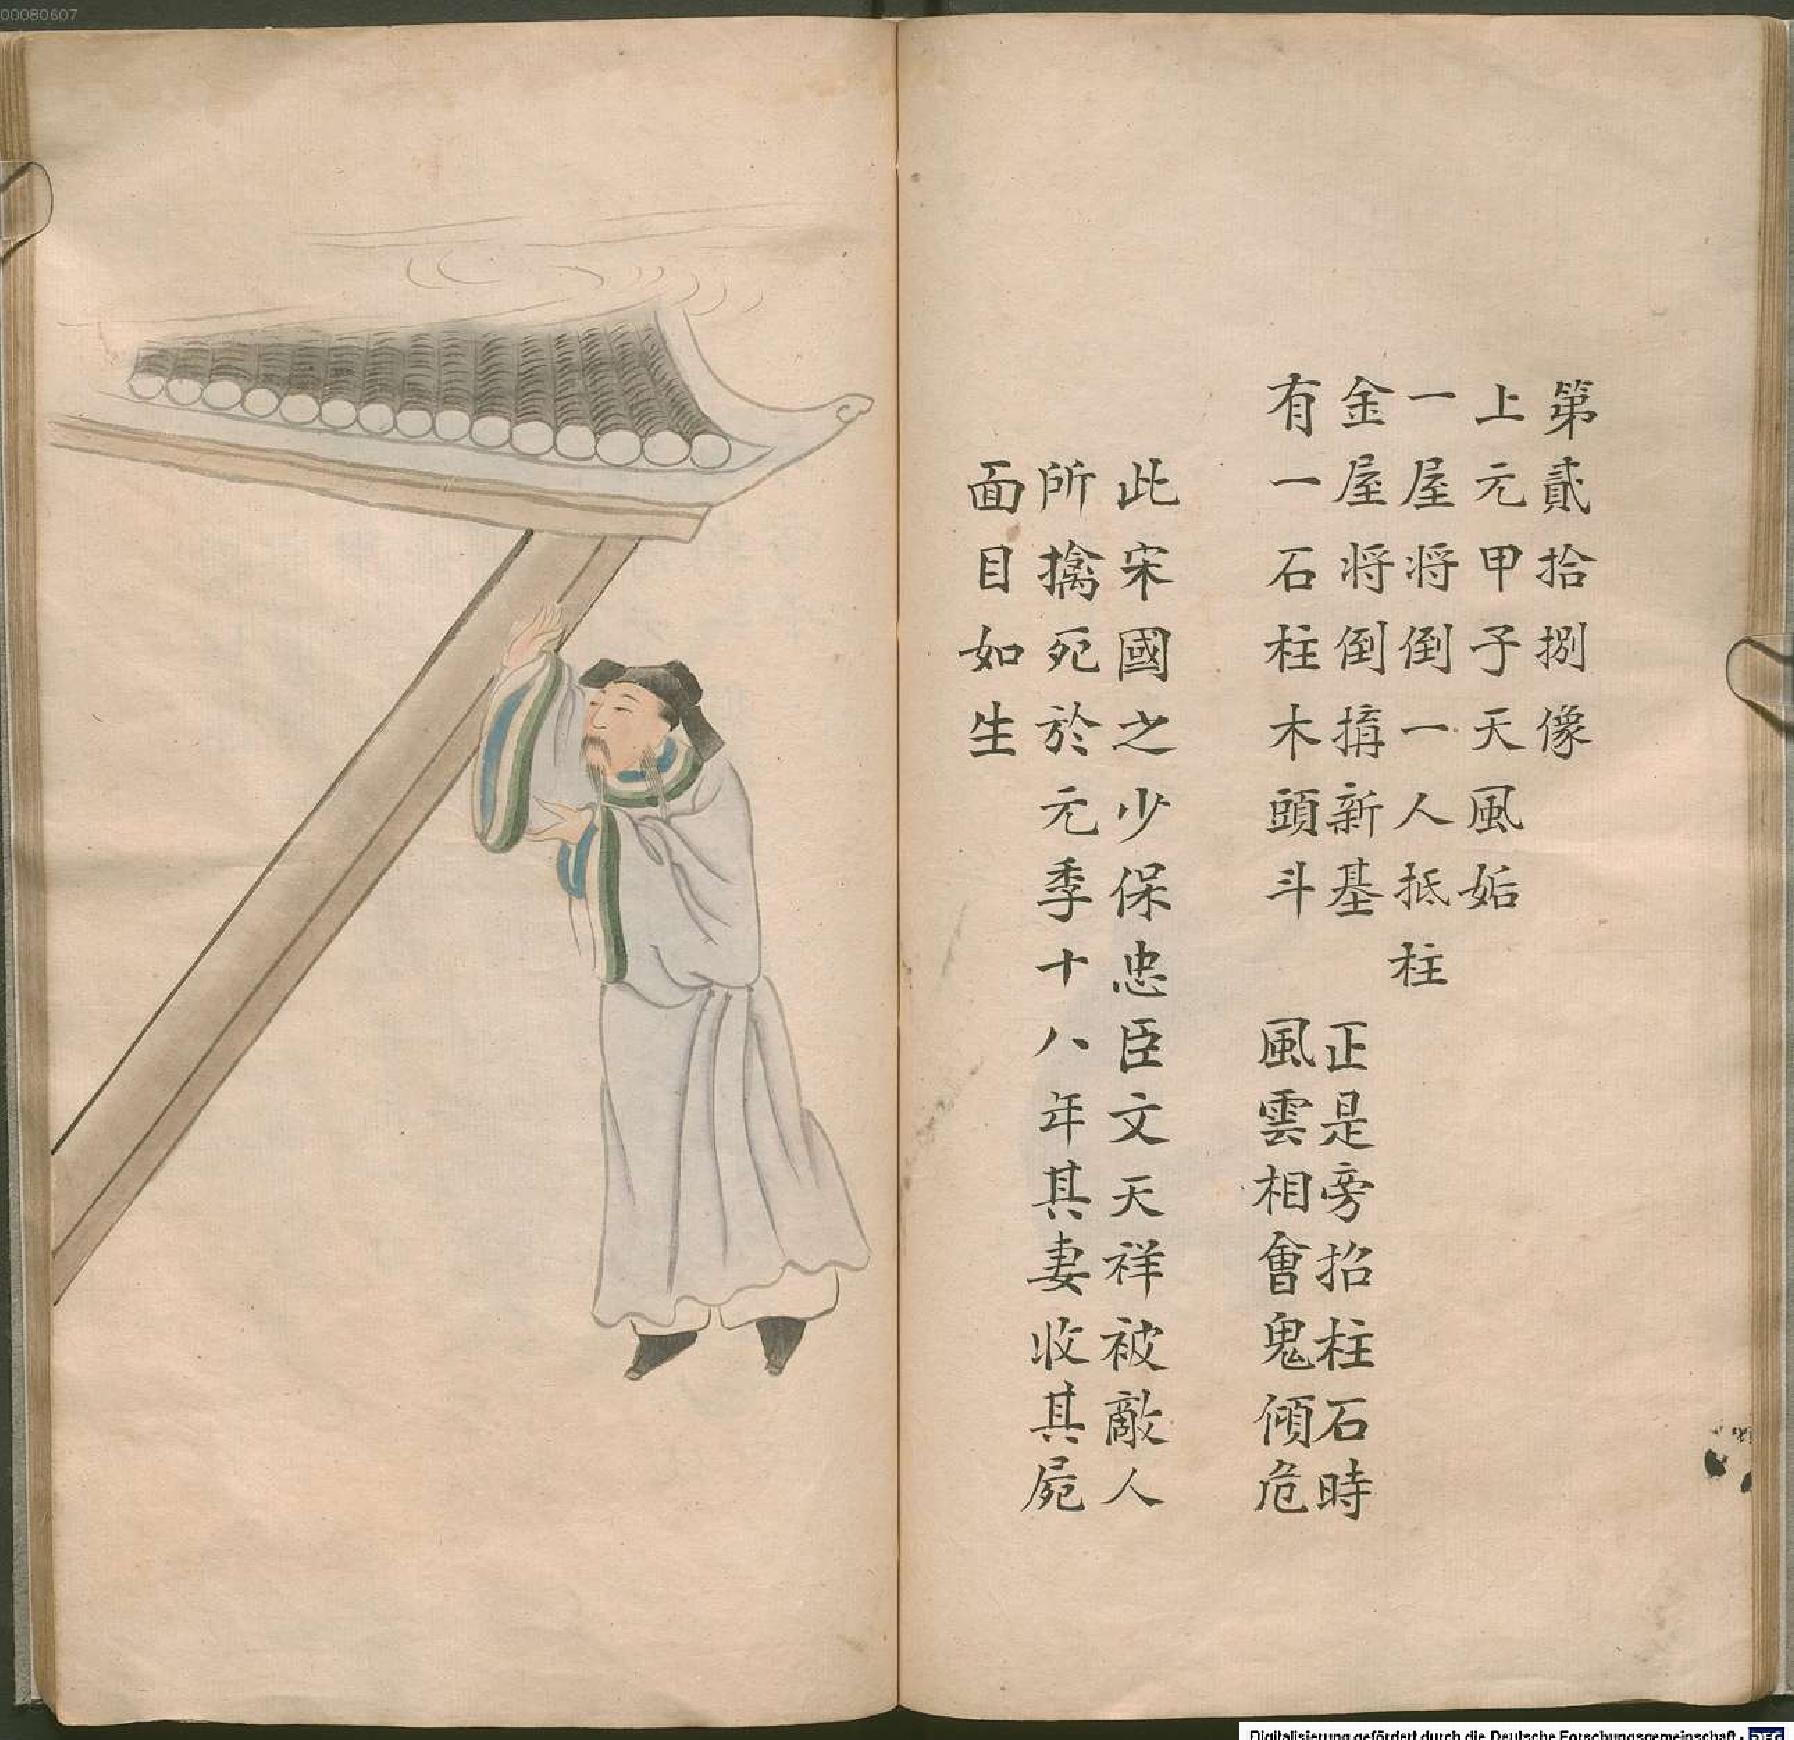 第貳拾捌像
上元甲子天風姤
一屋將倒一人抵柱
金屋將倒搆新基 正是旁招柱石時
有一石柱木頭斗 風雲相會鬼傾危
此宋國之少保忠臣文天祥被敵人
所擒死於元季十八年其妻收其屍
面目如生
00080607
Digitalisierung gefördert durch die Deutsche Forschungsgemeinschaft - DFG